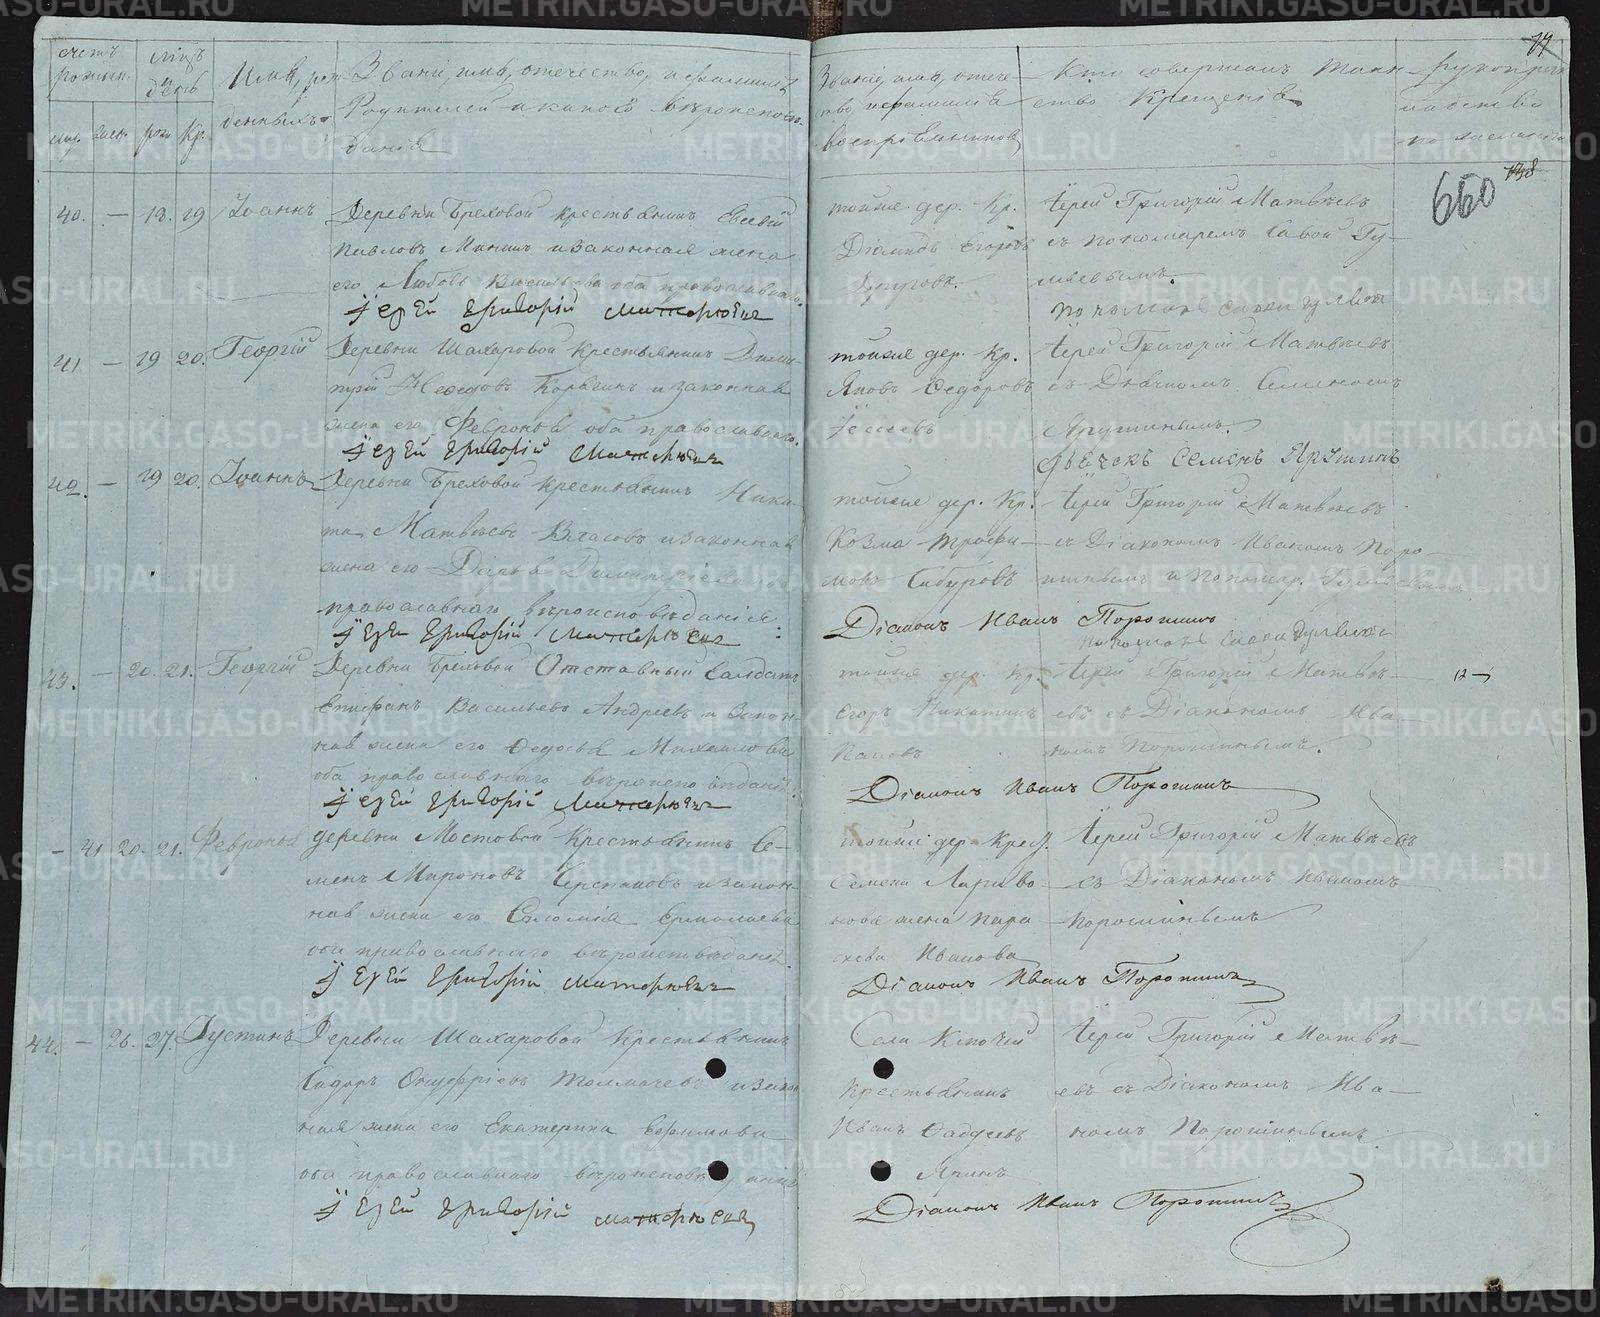 счетъ
рожден.
муж. жен.
мѣсяцъ
и
день
рож. Кр.
Имя, рож-
денныхъ.
Званіе, имя, отечество, и фамилія
Родителей и какого вѣроисповѣ-
данія
Званіе, имя, отече-
ство, и фамилія
воспріемниковъ
Кто совершалъ таин-
ство Крещенія
рукоприк-
ладство
по желанію
77
138
660
40. — 18. 19 Іоаннъ
Деревни Бреховой крестьянинъ Евсевій
Павловъ Мининъ и законная жена
его Любовь Васильева оба православнаго.
Іерей Григорій
тойже дер. Кр.
Діомидъ Егоровъ
Друговъ.
Іерей Григорій Матвѣевъ
съ пономаремъ Савой Гу-
ляевымъ.
41 — 19 20. Георгій
Деревни Шахаровой Крестьянинъ Дими-
трій и законная
жена его Февронья оба православнаго.
Іерей Григорій
тойже дер. Кр.
Яковъ Федоровъ
Іерей Григорій Матвѣевъ
съ Дьячкомъ Семеномъ
Ярутинымъ.
Дьячекъ Семенъ Ярутинъ
42. — 19 20. Іоаннъ
Деревни Бреховой крестьянинъ Ники-
та Матвѣевъ Власовъ и законная
жена его Дарья Димитріева оба
православнаго вѣроисповѣданія
Іерей Григорій
тойже дер. Кр.
Козма Трофи-
мовъ Сибировъ
Іерей Григорій Матвѣевъ
съ Діакономъ Иваномъ Поро-
шинымъ и пономар.
Діаконъ Иванъ Порошинъ
43. — 20. 21. Георгій
Деревни Бреховой Отставный Салдатъ
Епифанъ Васильевъ Андреевъ и закон-
ная жена его Федосья Михайлова
оба православнаго вѣроисповѣданія.
Іерей Григорій
тойже дер. Кр.
Егоръ Никитинъ
Пановъ
Іерей Григорій Матвѣ-
евъ съ Діакономъ Ива-
номъ Порошинымъ.
Діаконъ Иванъ Порошинъ
— 41 20. 21. Февронья
деревни Мостовой Крестьянинъ Се-
менъ Мироновъ и закон-
ная жена его Саломія Ермолаева
оба православнаго вѣроисповѣданія.
Іерей Григорій
тойже дер. Крест.
Семена Ларионо-
нова жена Пара-
скева Иванова
Іерей Григорій Матвѣевъ
съ Діакономъ Иваномъ
Порошинымъ
Діаконъ Иванъ Порошинъ
44. — 26. 27. Іустинъ
Деревни Шахаровой Крестьянинъ
Сидоръ Онуфріевъ Толмачевъ и закон-
ная жена его Екатерина Ефимова
оба православнаго вѣроисповѣданія
Іерей Григорій
Села Ключей
Крестьянинъ
Иванъ Фадѣевъ
Іерей Григорій Матвѣ-
евъ съ Діакономъ Ива-
номъ Порошинымъ.
Діаконъ Иванъ Порошинъ
METRIKI.GASO-URAL.RU